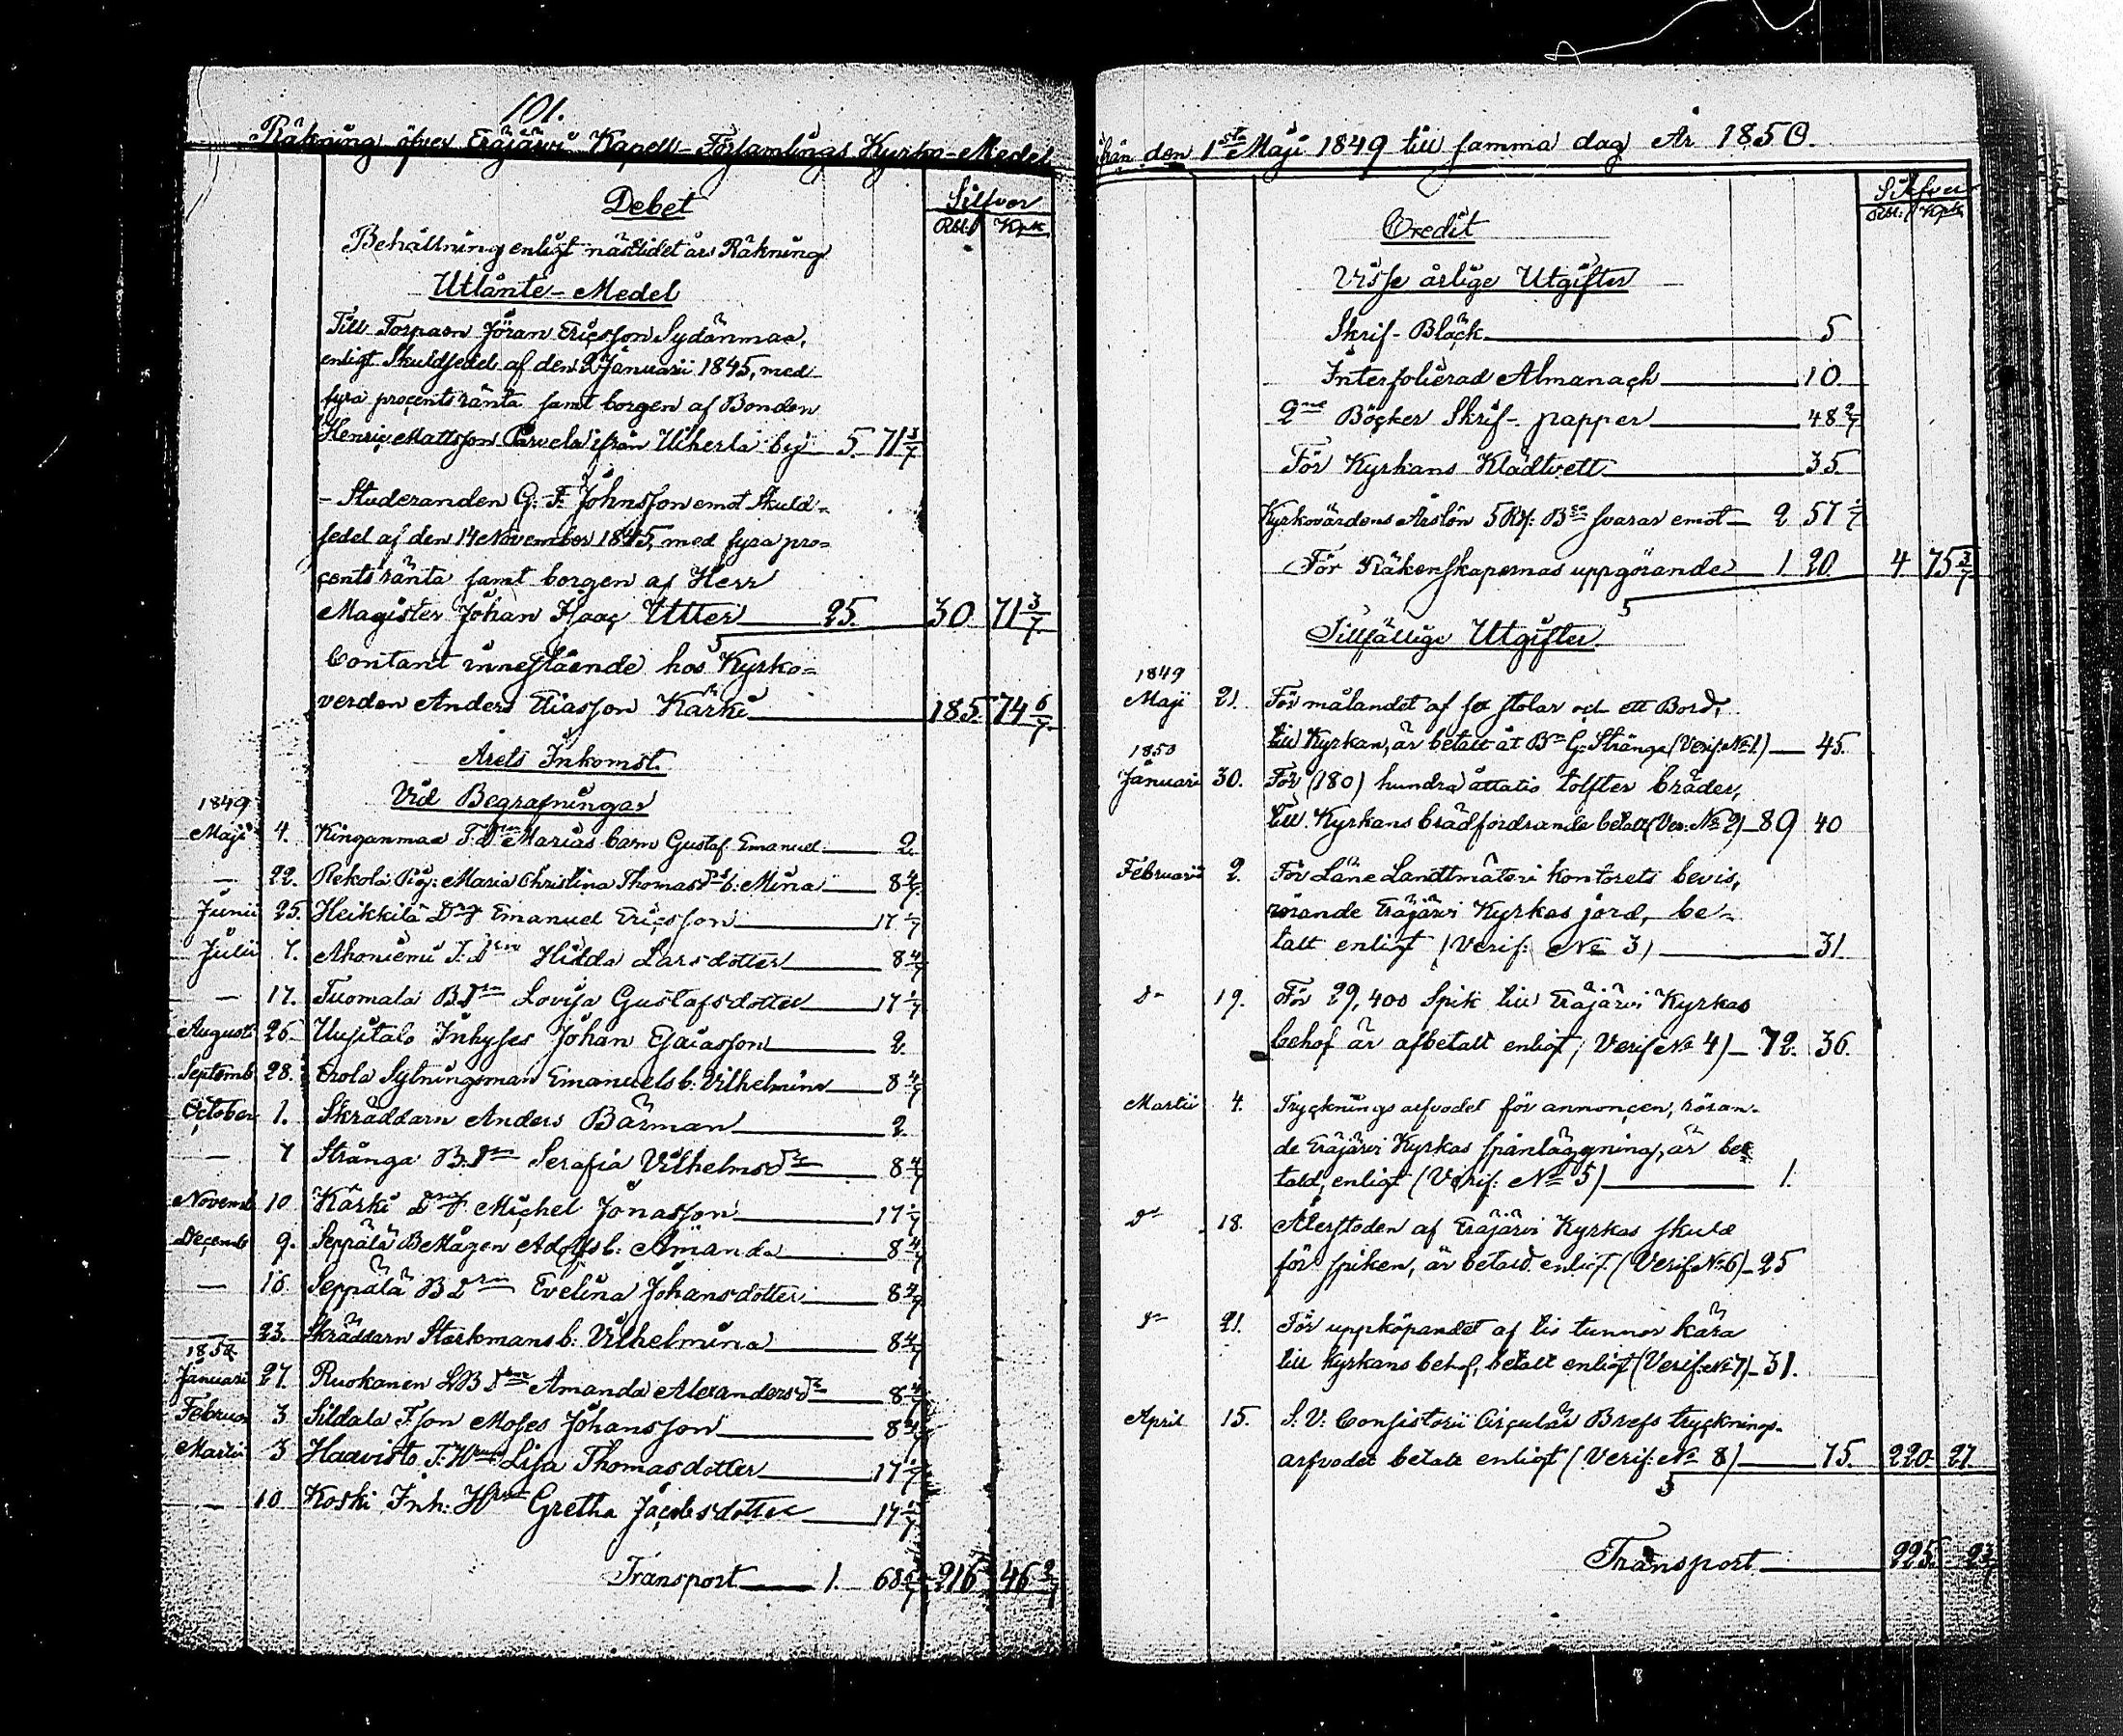 101.
Räkning öfver Eräjärvi Kapell-Församlings Kyrko-Medel
Debet
Silfver
Rbl: Kpk
Behållning enligt nästlidet års Räkning
Utlånte-Medel
Till Torparn Jöran Ericsson Sydänmaa,
enligt Skuldsedel af den 2 Januarii 1845, med
fyra procents ränta samt borgen af Bonden
Henric Mattsson Parvela ifrån Uiherla by 5 71 3/7
- Studeranden G: F: Johnsson emot Skuld-
sedel af den 14 November 1845, med fyra pro-
cents ränta samt borgen af Herr
Magister Johan Isaac Utter 25. 30 71 3/7
Contant innestående hos Kyrko-
verden Anders Eliasson Kärki 185 74 6/7
Årets Inkomst.
Vid Begrafningar
1849
Maji 4. Kinganmaa T. Drn Marias barn Gustaf Emanuel 2.
— 22. Rekola Pig: Maria Christina Thomasdrs b: Mina 8 4/7
Junii 25. Heikkilä Drg Emanuel Ericsson 17 1/7
Julii 7. Ahoniemi T. Drn Hilda Larsdotter 8 4/7
— 17. Tuomala B. Drn Lovisa Gustafsdotter 17 1/7
Augusti 26. Uusitalo Inhyses Johan Esaiasson 2.
Septemb 28. Erola Sytningsman Emanuels b: Vilhelmina 8 4/7
October 1. Skräddarn Anders Bärman 2
— 7 Stränga B. Drn Serafia Vilhelmsdr 8 4/7
Novemb 10 Kärki Drg Michel Jonasson 17 1/7
Decemb 9. Seppälä B Mågen Adolfs b: Amanda 8 4/7
— 16 Seppälä B Drn Evelina Johansdotter 8 4/7
23. Skräddarn Starkmans b: Vilhelmina 8 4/7
1850
Januari 27. Ruokanen LB Drn Amanda Alexandersdr 8 4/7
Februar 3 Sildala T. son Moses Johansson 8 4/7
Martii 3 Haavisto T: Hrun Lisa Thomasdotter 17 1/7
— 10 Koski Inh: Hru Gretha Jacobsdotter 17 1/7
Transport 1. 68 4/7 216 46 2/7
ifrån den 1sta Maji 1849 till samma dag År 1850.
Silfver
Rbl: Kpk
Credit
Visse årlige Utgifter
Skrif-Bläck 5
Interfolierad Almanach 10
2ne Böcker Skrif-papper 48 2/7
För Kyrkans Klädtvett 35
Kyrkovärdens Årslön 5 Rd: Bco svarar emot 2 57 1/7
För Räkenskapernas uppgörande 1 20 4 75 3/7
Tillfällige Utgifter.
1849
Maji 21. För målandet af sex stolar och ett Bord,
till Kyrkan, är betalt åt Bn G: Stränga (Verif: No 1) 45.
1850
Januari 30. För (180) hundra åttatio tolfter bräder,
till Kyrkans brädfordrande betalt (Ver: No 2) 89 40
Februarii 2. För Läne Landtmäteri kontorets bevis,
rörande Eräjärvi Kyrkas jord, be-
talt enligt (Verif: No 3) 31.
do 19. För 29,400 Spik till Eräjärvi Kyrkas
behof är afbetalt enligt, Verif No 4) 72. 36.
Martii 4. Tryckningsarfvodet för annoncen, röran-
de Eräjärvi Kyrkas spånläggning, är be-
tald, enligt (Verif: No 5) 1.
do 18. Återstoden af Eräjärvi Kyrkas skuld
för spiken, är betald enligt (Verif. No 6) 25
do 21. För uppköpandet af tio tunnor kära
till Kyrkans behof, betalt enligt (Verif: No 7) 31.
April 15. S: V: Consistorii Circulär Brefs trycknings-
arfvodet betalt enligt (Verif: No 8) 75. 220 27.
Transport 225. 2 3/7